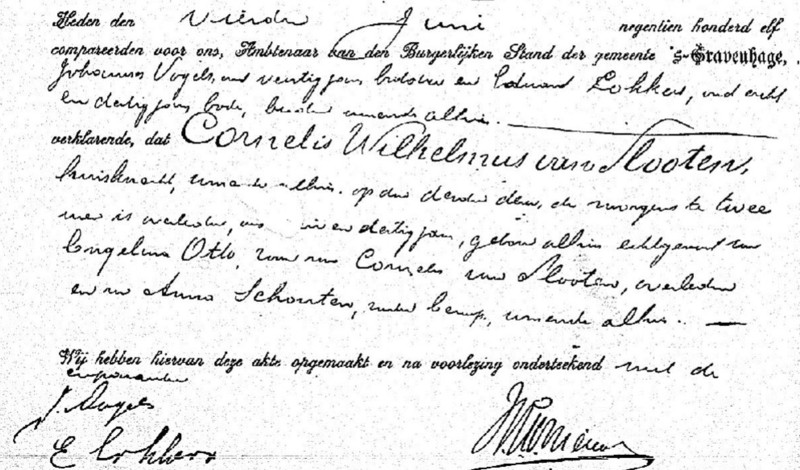 Heden den vierden Juni negentien honderd elf
compareerden voor ons, Ambtenaar van den Burgerlijken Stand der gemeente 's-Gravenhage,
Johannes Vogels, oud veertig jaren, bidder en Eduard Lokkers, oud acht
en dertig jaren, bode, beiden wonende alhier.
verklarende, dat Cornelis Wilhelmus van Slooten,
huisknecht, wonende alhier, op den derden dezer, des morgens te twee
ure is overleden, oud en dertig jaren, geboren alhier echtgenoot van
Engelina Otto, zoon van Cornelis van Slooten, overleden
en van Anna Schouten, zonder beroep, wonende alhier.
Wij hebben hiervan deze akte opgemaakt en na voorlezing onderteekend met de
comparanten
J. Vogels
E Lokkers